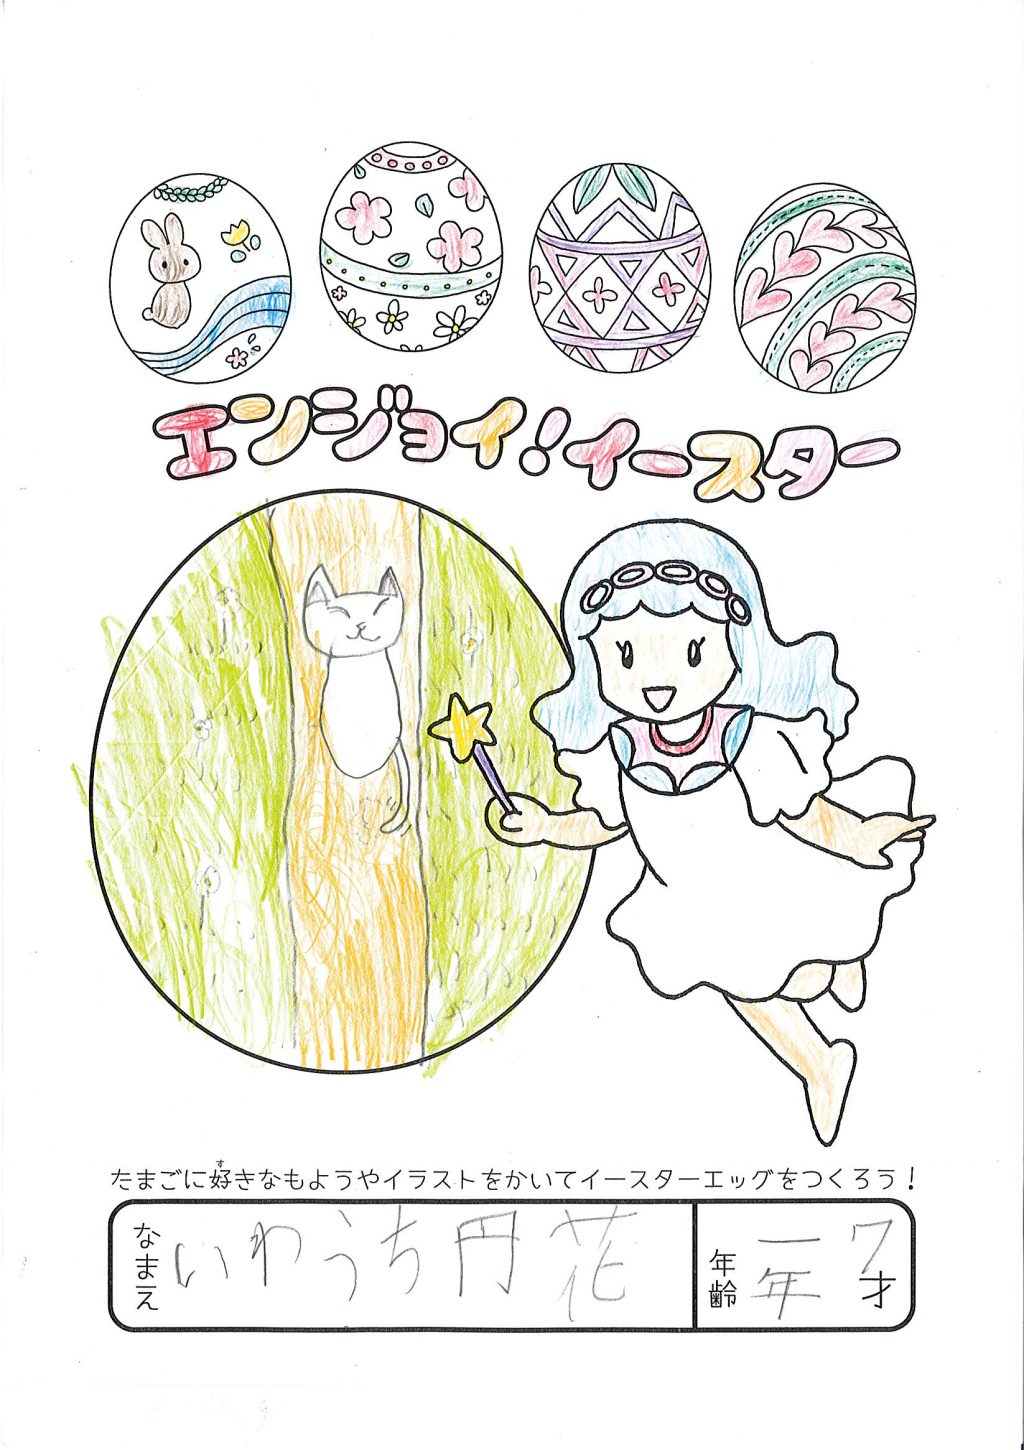 エンジョイ!イースター
たまごに好きなもようやイラストをかいてイースターエッグをつくろう!
す
なまえ いわうち円花
年齢 一年 7才